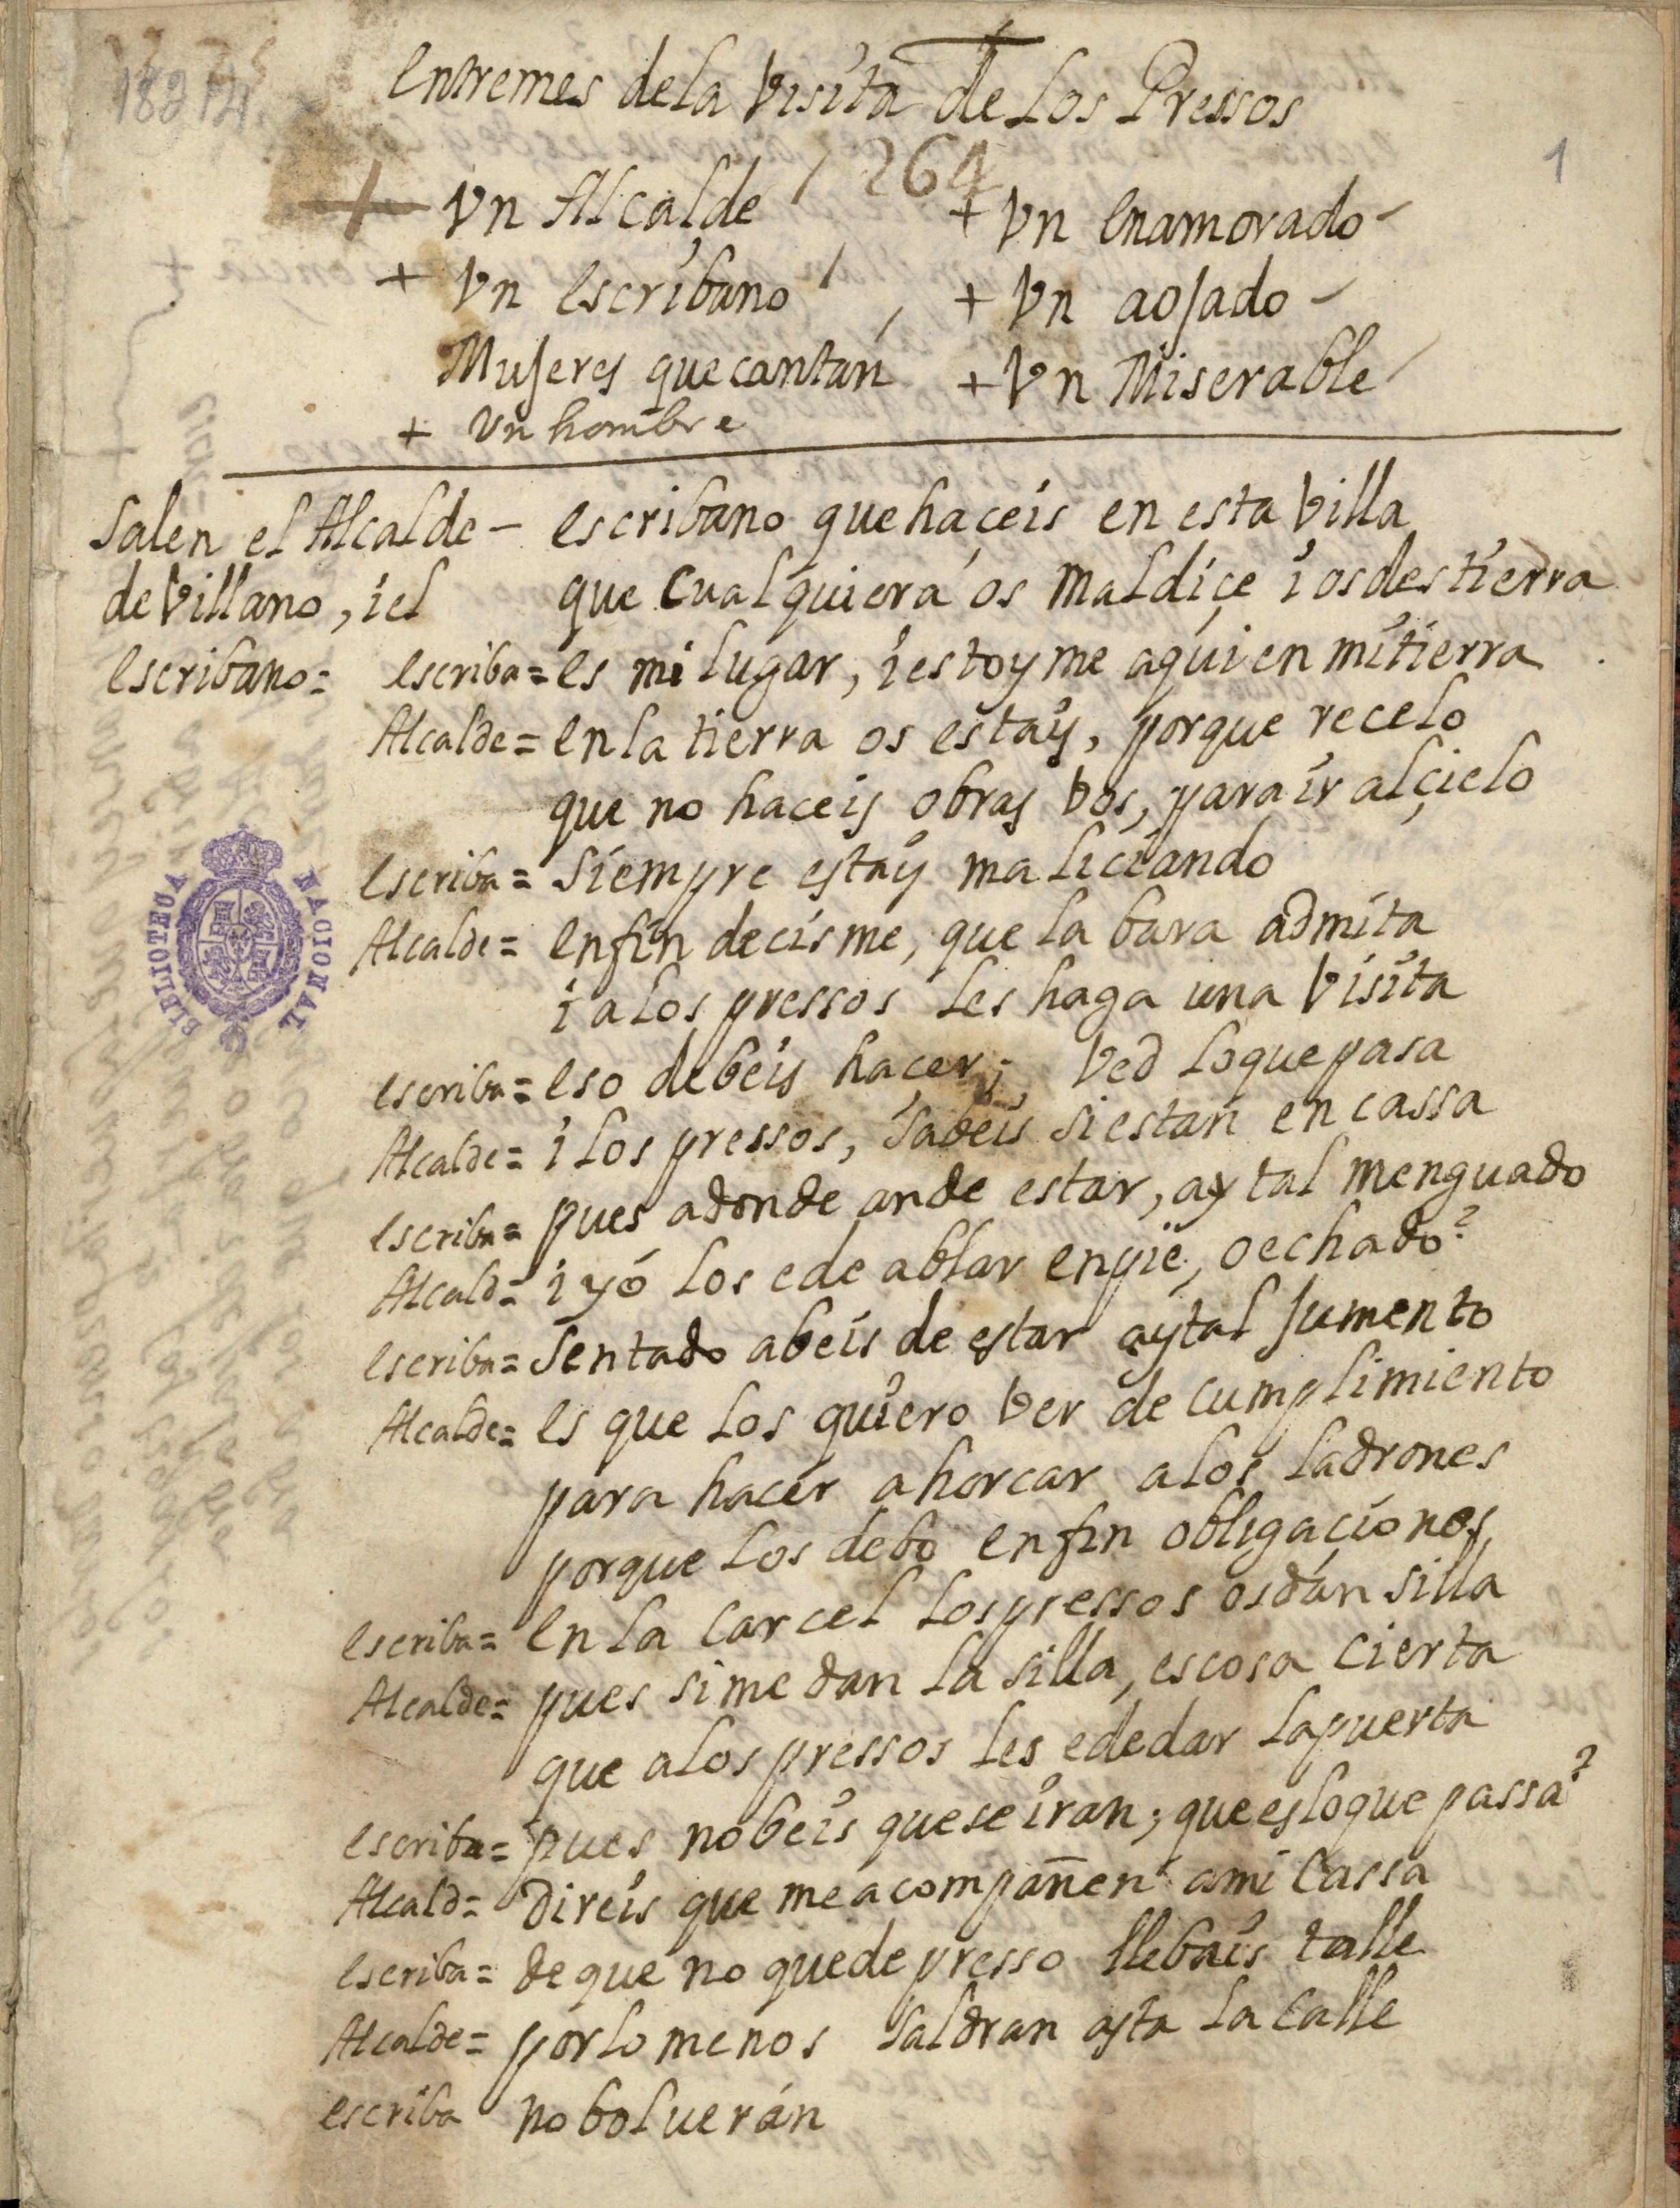 18274
entremes dela Visita de los Pressos
264
1
+ Vn Alcalde
+ Vn escribano
Mujeres que cantan
+ Vn hombre
+ Vn enamorado
+ Vn aojado
+ Vn Miserable
Salen el Alcalde –
de Villano, i el
escribano =
escribano que haçeis en esta Villa
que cualquiera os maldiçe i os destierra
escriba = es mi lugar, i estoyme aqui en mi tierra
Alcalde = en la tierra os estays, porque recelo
que no haceis obras vos, para ir al çielo
escriba = Siempre estays maliciando
Alcalde = en fin decisme, que la bara admita
i a los pressos les haga una Visita
escriba = eso debeis haçer; Ved lo que pasa
Alcalde = i los pressos, sabeis si estan en cassa
escriba = pues adonde ande estar, ay tal menguado
Alcald = i yó los e de ablar en pie, o echado?
escriba = Sentado abeis de estar ay tal Jumento
Alcalde = es que los quiero Ver de cumplimiento
para hacer ahorcar a los ladrones
porque los debo en fin obligaçiones
escriba = en la carcel los pressos os dán silla
Alcalde = pues si me dan la silla, es cosa cierta
que a los pressos les e de dar la puerta
escriba = pues no beis que se iran; que es lo que passa?
Alcald = direis que me acompañen a mi cassa
escriba = de que no quede presso llebais talle
Alcalde = por lo menos saldran asta la calle
escriba no bolueran
BIBLIOTECA NACIONAL